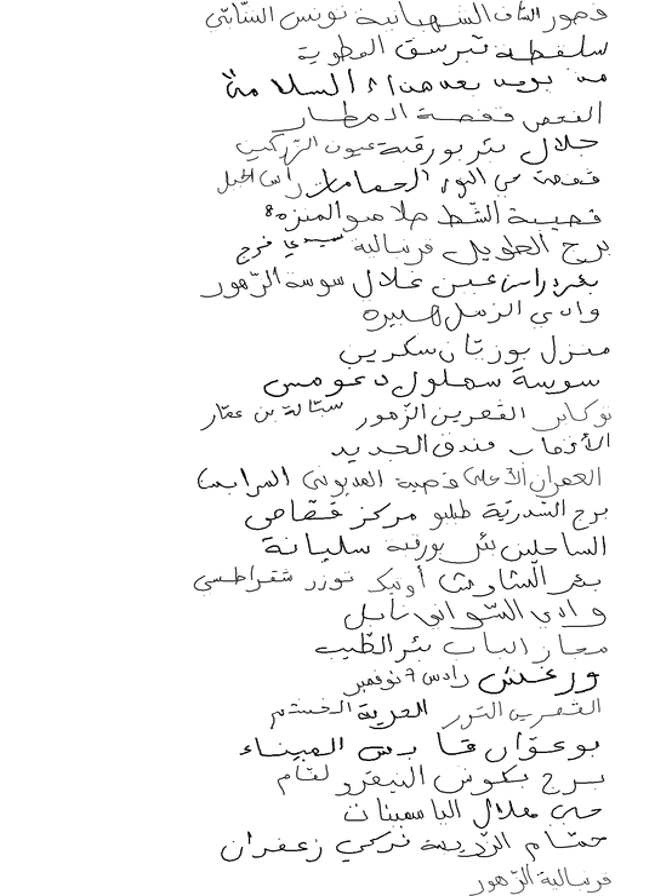 قصور الساف الشهبانية تونس الشتاتي
سلقطة تبرسق المطوية
السلامة
الفحص قفصة المطار
جلال بئر بورقبة عيون الزركين
قفصة حي النور الحمامات رأس الجبل
قصيبة الشط صلامبو المنزه 8
برج الطويل فرنبالية سيدي فرج
عين غلال سوسة الزهور
وادي الرمل هبيرة
منزل بوزيان سكرين
سوسة سهلول دعومس
نوكاس القصرين الزهور ستالة بن عمار
فندق الحديد
العمران الأعلى قصبة المديوني
برج السدرية طبلبو مركز قفاص
الساحلين بئر بورقبة سليانة
بئر الشاوش أوتيك توزر شقراطسي
وادي السواني نابل
مجاز الباب بئر الطيب
ورغش رادس 7 نوفمبر
القصرين النور الحرية
بوعوان قابس الميناء
برج بكوش النيفرو لقام
حي هلال الياسمينات
حمام الزريبة تركي زعفران
قرنبالية الزهور